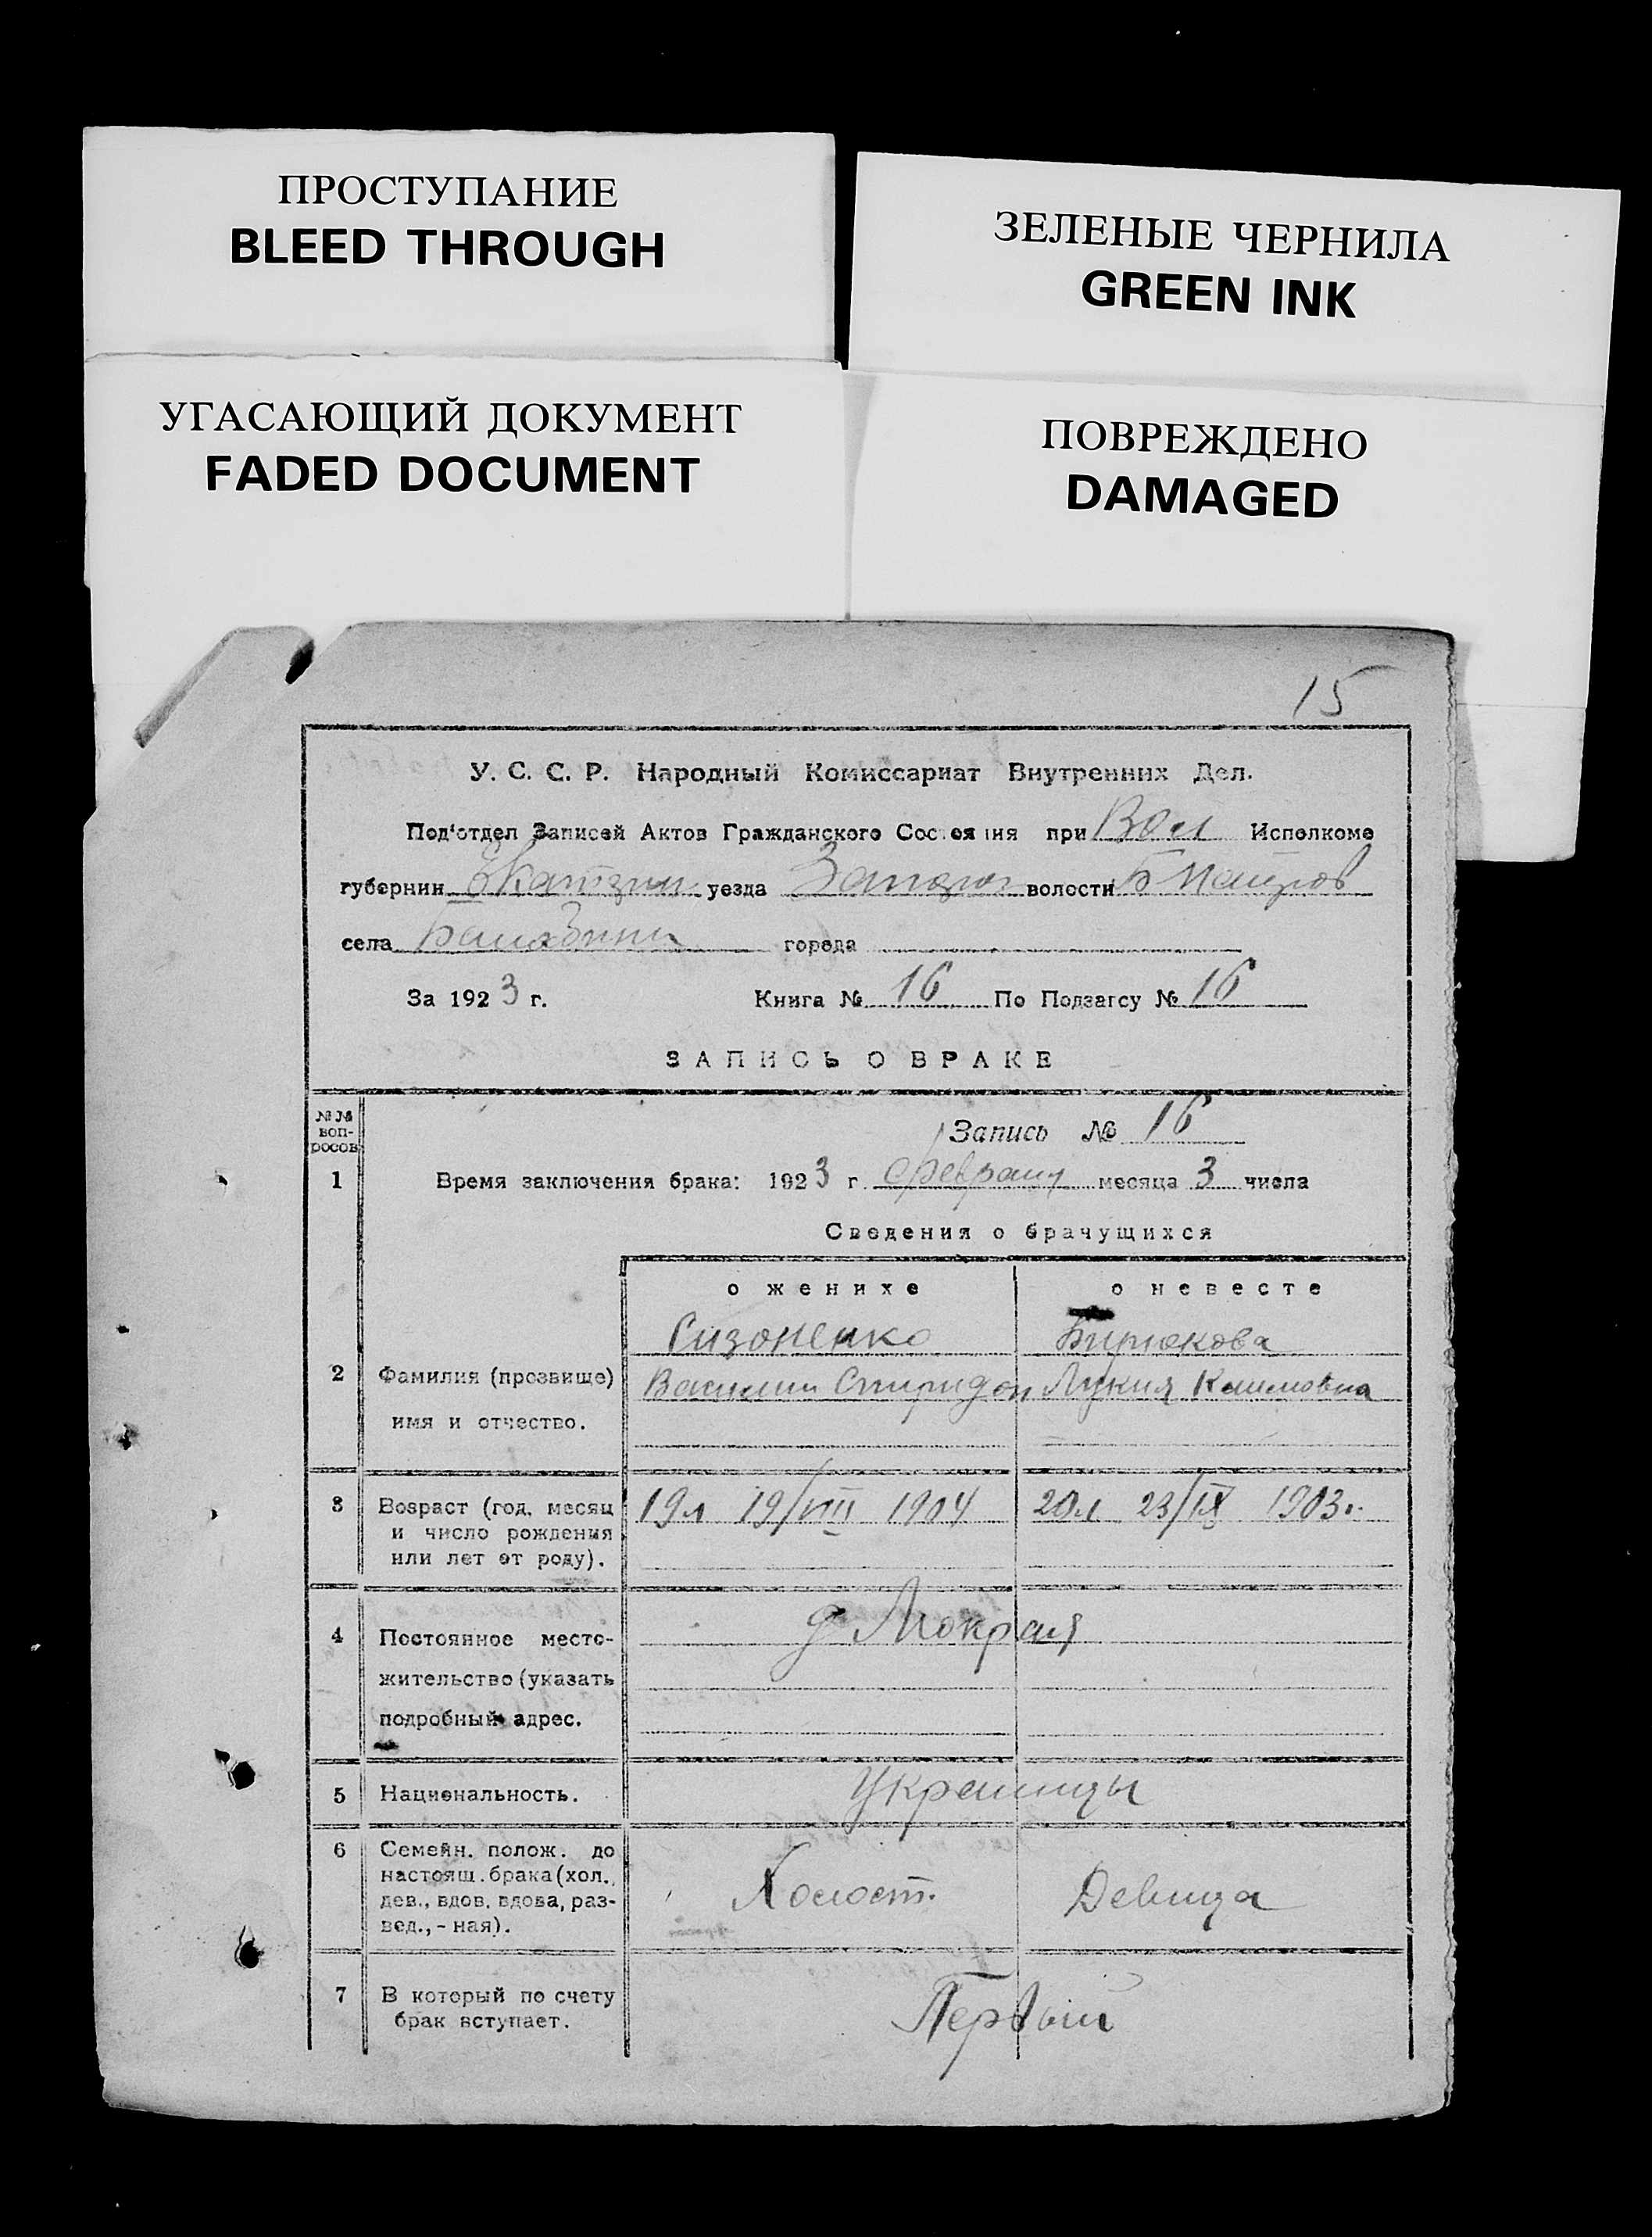 ПРОСТУПАНИЕ
BLEED THROUGH
ЗЕЛЕНЫЕ ЧЕРНИЛА
GREEN INK
УГАСАЮЩИЙ ДОКУМЕНТ
FADED DOCUMENT
ПОВРЕЖДЕНО
DAMAGED
15
У. С. С. Р. Народный Комиссариат Внутренних Дел.
Под'отдел Записей Актов Гражданского Состояния при Вол Исполкоме
губернии уезда Запорож волости
села города
За 1923 г. Книга № 16 По Подзагсу № 16
ЗАПИСЬ О БРАКЕ
№№ воп-
росов
Запись № 16
1 Время заключения брака: 1923 г. февраля месяца 3 числа
Сведения о брачущихся
о женихе о невесте
Сизоненко Бирюкова
2 Фамилия (прозвище) Василий Спиридон Лукия Климовна
имя и отчество.
3 Возраст (год, месяц 19л 19/VIII 1904 20л 23/IX 1903г.
и число рождения
или лет от роду).
4 Постоянное место- д Мокрая
жительство (указать
подробный адрес.
5 Национальность. Украинцы
6 Семейн. полож. до
настоящ. брака (хол.,
дев., вдов, вдова, раз- Холост. Девица
вед.,-ная).
7 В который по счету Первый
брак вступает.